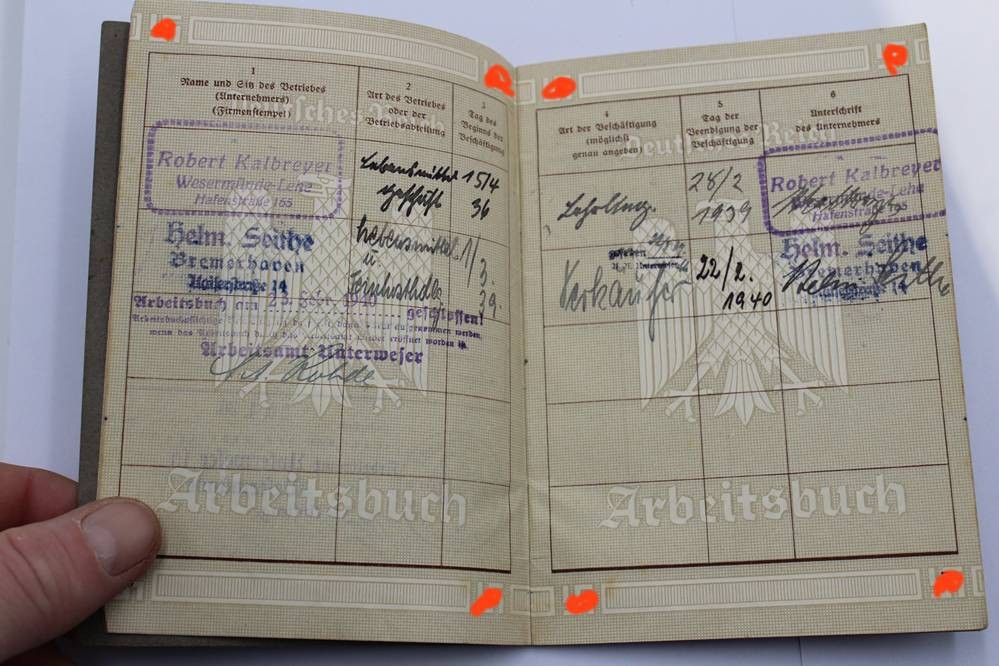 1
Name und Sitz des Betriebes
(Unternehmers)
(Firmenstempel)
2
Art des Betriebes
oder der
Betriebsabteilung
3
Tag
des
Beginns der
Beschäftigung
Robert Kalbreyer
Wesermünde-Lehe
Hafenstraße 165
Lebensmittel
geschäft
15/4
36
Helm. Seithe
Bremerhaven
Lebensmittel
u.
Feinkosthdlg
1/3.
39.
Arbeitsbuch am 23. Febr. 1940 geschlossen!
wenn das Arbeitsbuch
eröffnet worden ist.
Arbeitsamt Unterweser
Arbeitsbuch
4
Art der Beschäftigung
(möglichst
genau angeben)
5
Tag der
Beendigung der
Beschäftigung
6
Unterschrift
des Unternehmers
Deutsches Reich
Lehrling.
28/2
1939
Robert Kalbreyer
Wesermünde-Lehe
Hafenstraße 165
Verkäufer
22/2.
1940
Helm. Seithe
Bremerhaven
Arbeitsbuch